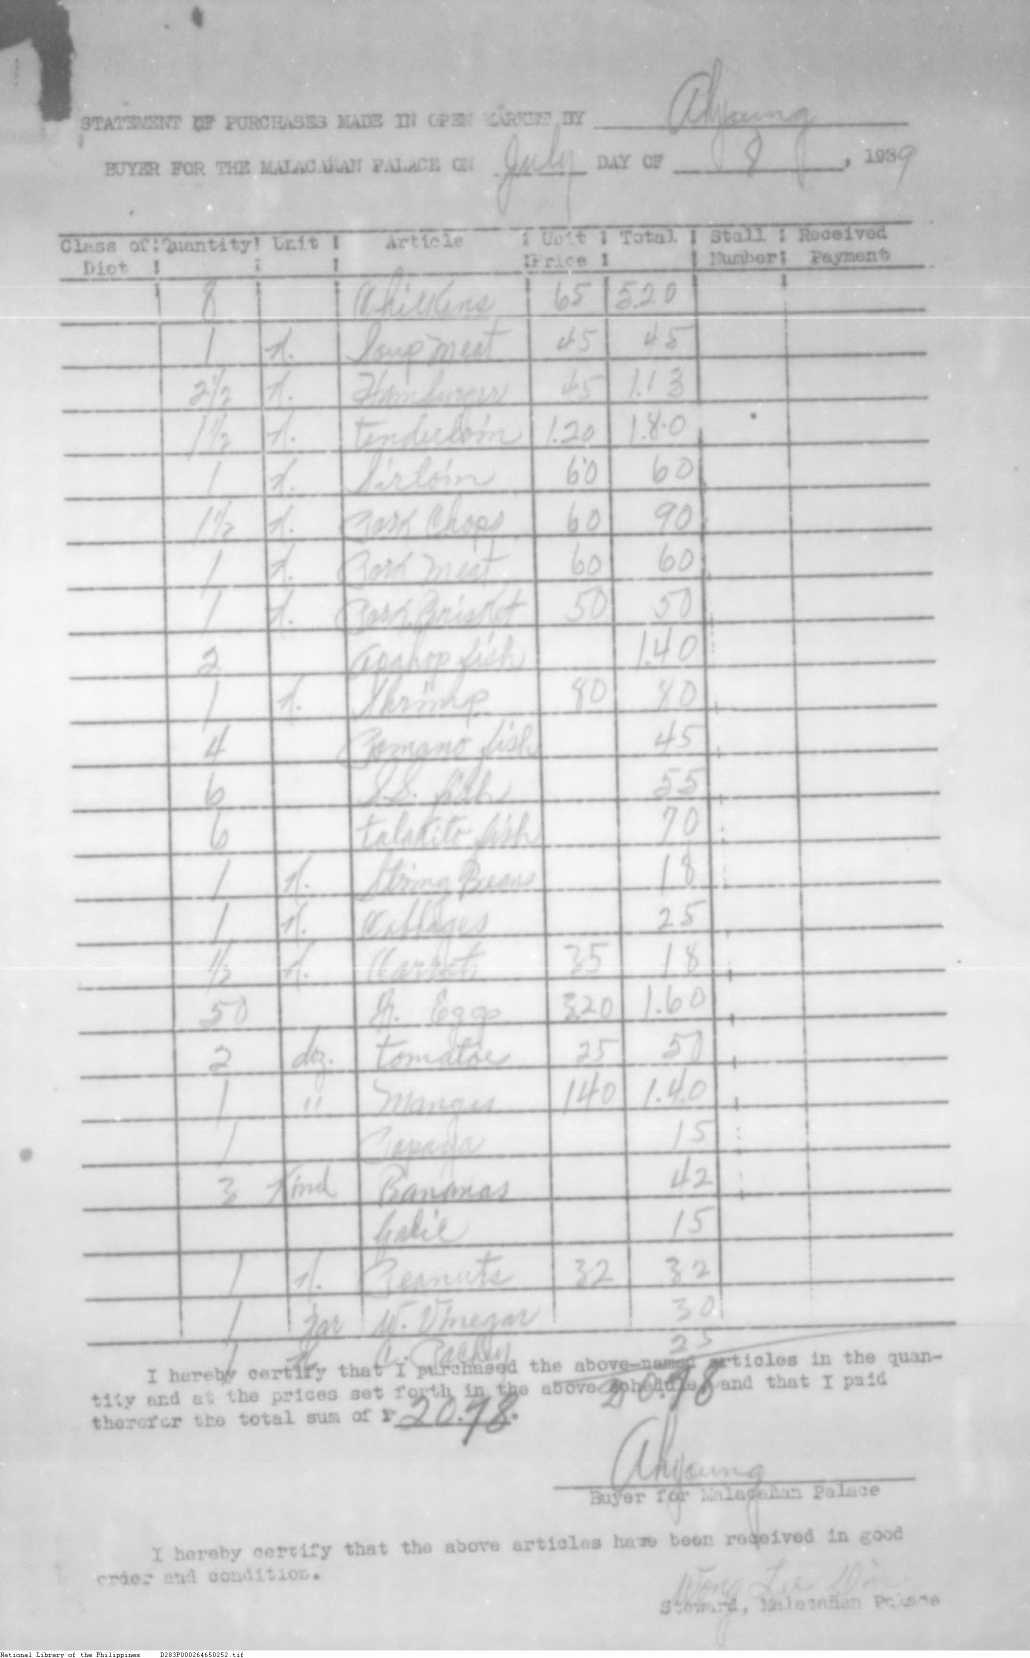 STATEMENT OF PURCHASES MADE IN OPEN MARKET BY Ahyoung
BUYER FOR THE MALACAÑAN PALACE ON July DAY OF 8, 1939
Class of Diet Quantity Unit Article Unit Price Total Stall Number Received Payment
8 Chickens 65 5.20
1 k. Soup meat 45 45
2 1/2 k. Hamburger 45 1.13
1 1/2 k. tenderloin 1.20 1.80
1 k. Sirloin 60 60
1 1/2 k. Pork Chops 60 90
1 k. Pork meat 60 60
1 k. Pork Brisket 50 50
2 Apahap fish 1.40
1 k. Shrimp 80 80
4 Pomano fish 45
6 S.S. fish 55
6 talakito fish 70
1 k. String Beans 18
1 k. Cabbages 25
1/2 k. Carrot 35 18
50 Eggs 3.20 1.60
2 doz. tomatoe 25 50
1 " Mangis 1.40 1.40
1 Papaya 15
3 kind Bananas 42
15
1 k. Peanuts 32 32
1 jar W. Vinegar 30
1 25
I hereby certify that I purchased the above-named articles in the quan-
tity and at the prices set forth in the above schedule, and that I paid
therefor the total sum of ₱ 20.98.
20.98
Ahyoung
Buyer for Malacañan Palace
I hereby certify that the above articles have been received in good
order and condition.
Wong Lee
Steward, Malacañan Palace
National Library of the Philippines D283P000264650252.tif